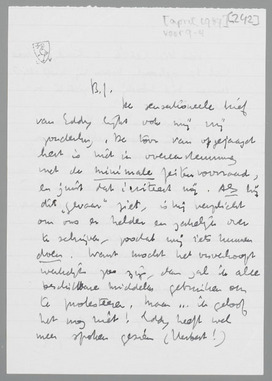 [april 1949] [242]
voor 9-4
B.J.
De sensationeele brief
van Eddy lijkt ook mij vrij
zonderling. De toon van opgejaagd
heid is niet in overeenstemming
met de minimale feitenvoorraad,
en juist dat irriteert mij. Als hij
dit "gevaar" ziet, is hij verplicht
om ons er helder en zakelijk over
te schrijven, zoodat wij iets kunnen
doen. Want mocht het onverhoopt
werkelijk zoo zijn, dan zal ik alle
beschikbare middelen gebruiken om
te protesteeren. Maar ... ik geloof
het nog niet! Eddy heeft wel
meer spoken gezien (Herbert!)